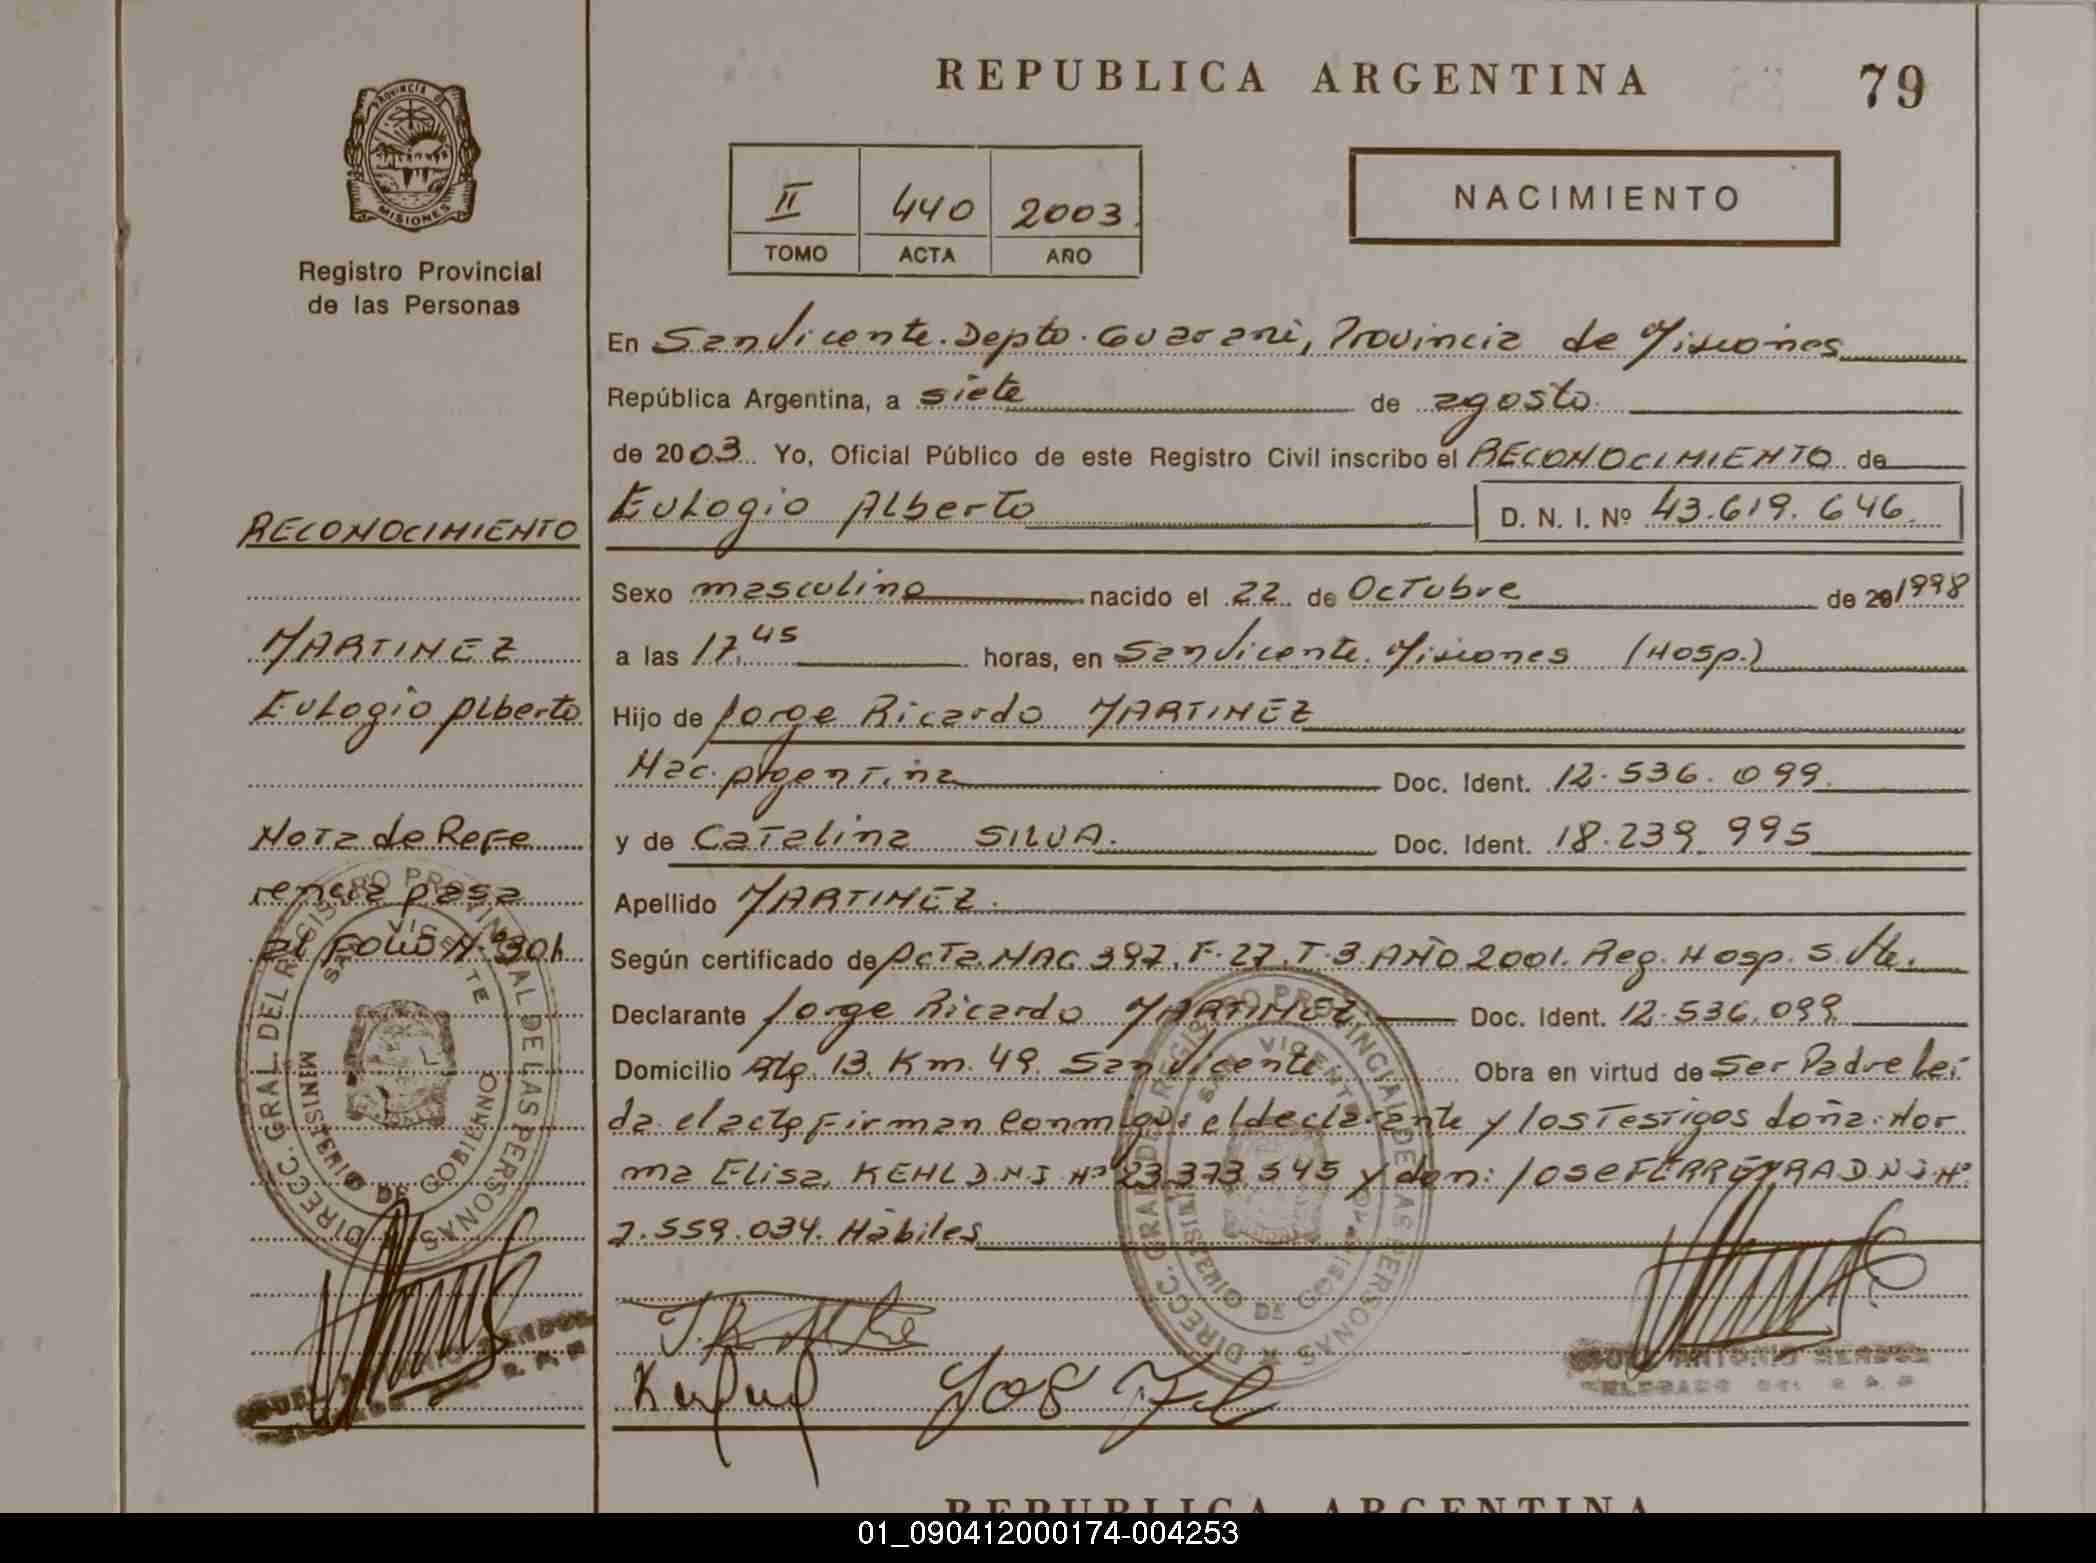 REPUBLICA ARGENTINA
79
PROVINCIA DE
MISIONES
Registro Provincial
de las Personas
II 440 2003
TOMO ACTA AÑO
NACIMIENTO
En San Vicente. Depto. Guarani, Provincia de Misiones
República Argentina, a siete de agosto
de 2003 Yo, Oficial Público de este Registro Civil inscribo el RECONOCIMIENTO de
Eulogio Alberto D. N. I. Nº 43.619.646
Sexo masculino nacido el 22 de Octubre de 20 1998
a las 17,45 horas, en San Vicente. Misiones (Hosp.)
Hijo de Jorge Ricardo MARTINEZ
Nac. Argentina Doc. Ident. 12.536.099
y de Catalina SILVA. Doc. Ident. 18.239.995
Apellido MARTINEZ.
Según certificado de Acta. NAC 397. F. 27. T. 3 AÑO 2001. Reg. Hosp. S. Vte.
Declarante Jorge Ricardo MARTINEZ Doc. Ident. 12.536.099
Domicilio Rta. 13. Km. 49. San Vicente Obra en virtud de Ser Padre Lei
da el acta firman conmigo: el declarante y los Testigos doña: Nor
ma Elisa KEHL D.N.I Nº 23.373.545 y don: Jose FERREYRA D.N.I. Nº
7.559.034. Hábiles
RECONOCIMIENTO
MARTINEZ
Eulogio Alberto
Nota de Refe
rencia pasa
al FOLIO Nº 301
DIRECC. GRAL. DEL REGISTRO PROVINCIAL DE LAS PERSONAS
SAN VICENTE
MINISTERIO DE GOBIERNO
DIRECC. GRAL. DEL REGISTRO PROVINCIAL DE LAS PERSONAS
SAN VICENTE
MINISTERIO DE GOBIERNO
ANTONIO
DELEGADO DEL R. P. P.
REPUBLICA ARGENTINA
01_090412000174-004253